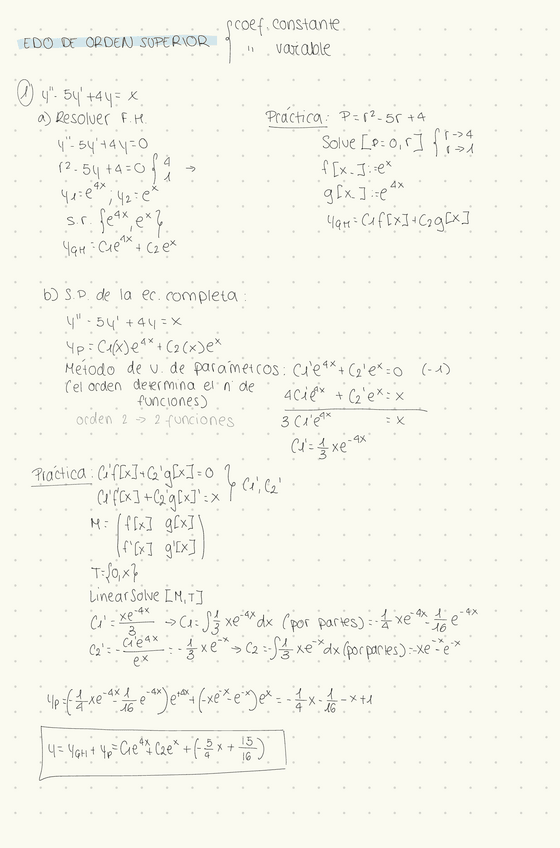 EDO DE ORDEN SUPERIOR { coef. constante
" variable
① y'' - 5y' + 4y = x
a) Resolver E.H.
y'' - 5y' + 4y = 0
r² - 5y + 4 = 0 { 4 1 →
y1 = e^4x ; y2 = e^x
s.r. {e^4x, e^x}
yGH = C1e^4x + C2e^x
Práctica: P = r² - 5r + 4
Solve [P=0, r] { r→4 r→1
f[x_] := e^x
g[x_] := e^4x
yGH = C1f[x] + C2g[x]
b) S.P. de la ec. completa:
y'' - 5y' + 4y = x
yP = C1(x)e^4x + C2(x)e^x
Método de v. de parámetros: C1'e^4x + C2'e^x = 0 (-1)
(el orden determina el nº de
funciones)
orden 2 → 2 funciones
4C1'e^4x + C2'e^x = x
3C1'e^4x = x
C1' = 1/3 xe^-4x
Práctica: C1'f[x] + C2'g[x] = 0 } C1', C2'
C1'f[x] + C2'g[x]' = x
M = ( f[x] g[x]
f'[x] g'[x] )
T = {0, x}
LinearSolve [M, T]
C1' = xe^-4x/3 → C1 = ∫ 1/3 xe^-4x dx (por partes) = -1/4 xe^-4x - 1/16 e^-4x
C2' = - C1'e^4x/e^x = -1/3 xe^-x → C2 = -∫ 1/3 xe^-x dx (por partes) = -xe^-x - e^-x
yP = (-1/4 xe^-4x - 1/16 e^-4x)e^+4x + (-xe^-x - e^-x)e^x = -1/4 x - 1/16 - x + 1
y = yGH + yP = C1e^4x + C2e^x + (-5/4 x + 15/16)